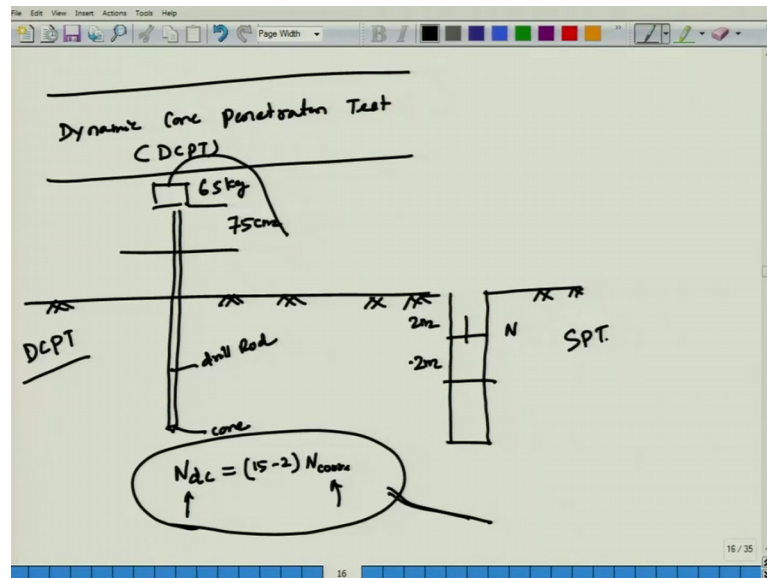 File Edit View Insert Actions Tools Help
Page Width
B I
Dynamic Cone Penetration Test
(DCPT)
65kg
75cm
DCPT
drill Rod
cone
2m
N
SPT.
2m
Ndc = (15-2) Ncorr
16/35
16